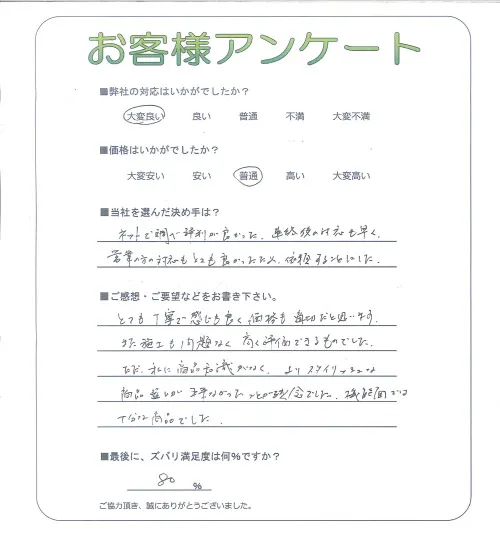 お客様アンケート
■弊社の対応はいかがでしたか？
大変良い 良い 普通 不満 大変不満
■価格はいかがでしたか？
大変安い 安い 普通 高い 大変高い
■当社を選んだ決め手は？
ネットで調べ評判が良かった。連絡後の対応も早く、
営業の方の対応もとても良かったため、依頼することにした。
■ご感想・ご要望などをお書き下さい。
とても丁寧で感じも良く価格も適切だと思います。
また施工も問題なく高く評価できるものでした。
ただ、私に商品知識がなく、よりスタイリッシュな
商品 ことが残念でした。機能面では
十分な商品でした。
■最後に、ズバリ満足度は何%ですか？
80 %
ご協力頂き、誠にありがとうございました。